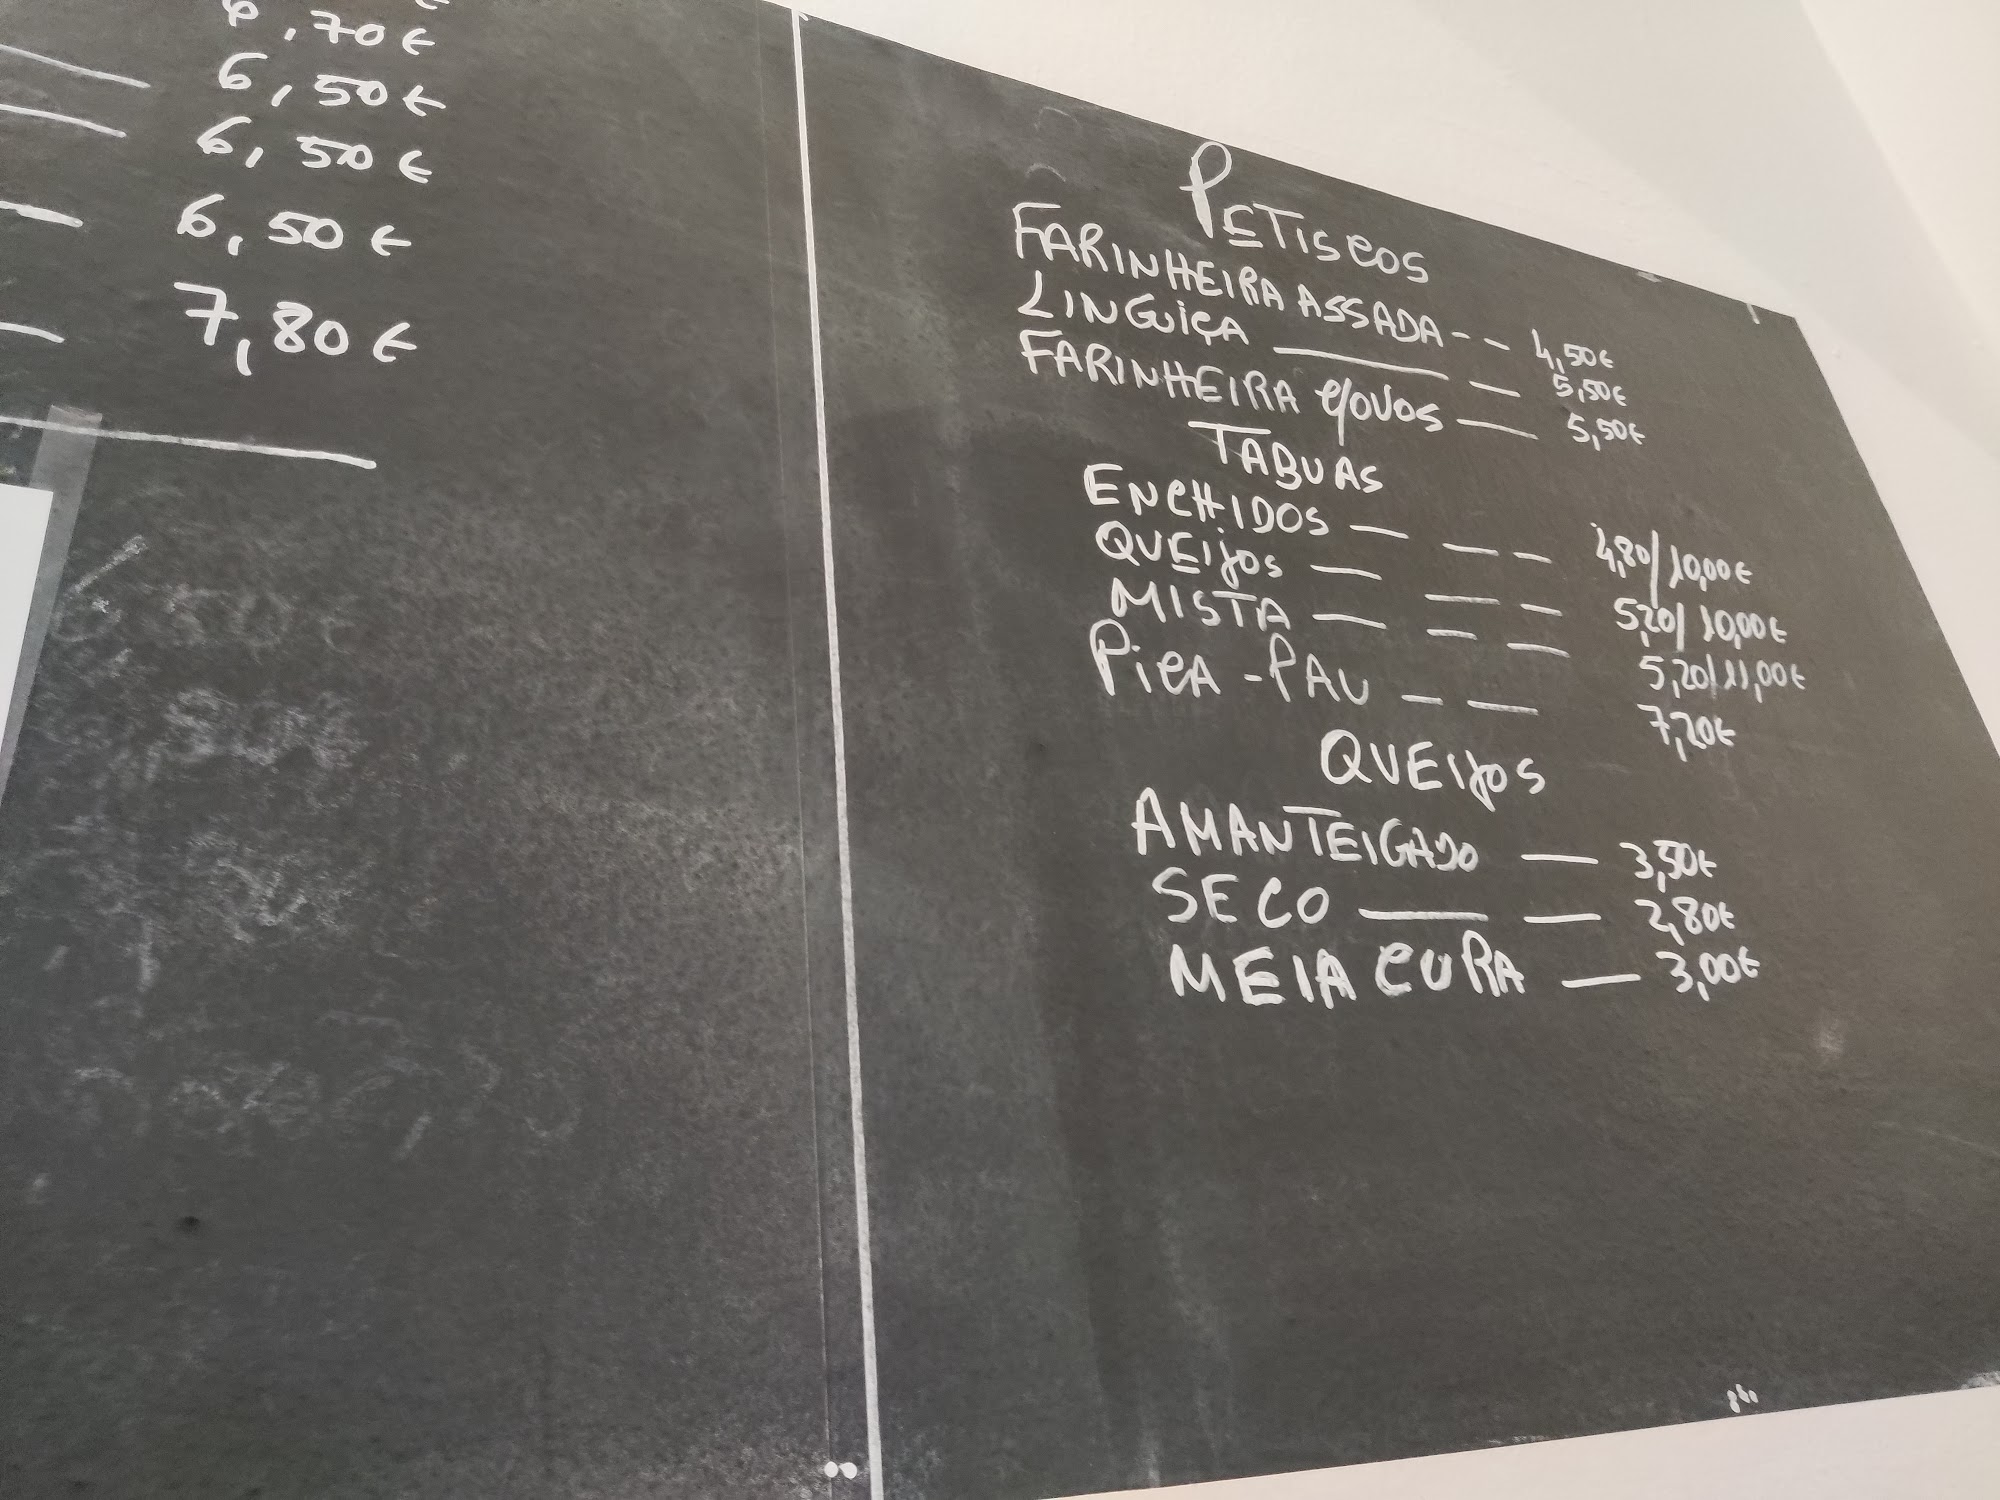 ,70€
6,50€
6,50€
6,50€
7,80€
PETISCOS
FARINHEIRA ASSADA -- 4,50€
LINGUIÇA — — 5,50€
FARINHEIRA C/OVOS — 5,50€
TABUAS
ENCHIDOS — — — 4,80/10,00€
QUEIJOS — — — 5,20/10,00€
MISTA — — — 5,20/11,00€
PICA-PAU — — 7,20€
QUEIJOS
AMANTEIGADO — 3,50€
SECO — — 2,80€
MEIA CURA — 3,00€